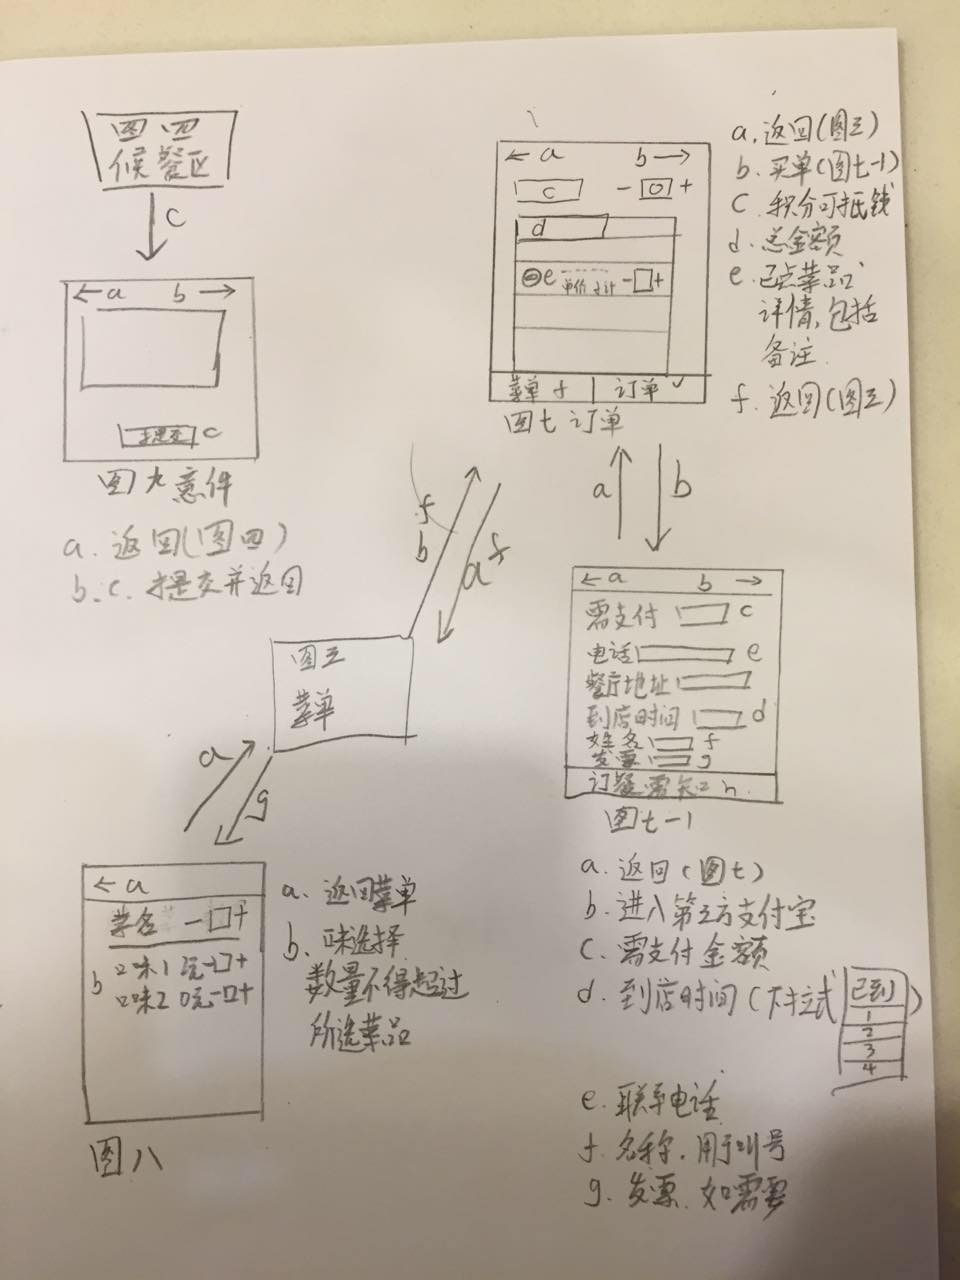 图四
候餐区
c
← a b →
提交 c
图九意件
a. 返回(图四)
b、c. 提交并返回
← a b →
c - 0 +
d
e 单价 小计 - +
菜单 f 订单 ✓
图七 订单
a. 返回(图三)
b. 买单(图七-1)
c 积分可抵钱
d. 总金额
e. 已点菜品
详情,包括
备注
f. 返回(图三)
a b
f
b
f
a
图三
菜单
a
g
← a b →
需支付 c
电话 e
餐厅地址
到店时间 d
姓名 f
发票 g
订餐需知 h
图七-1
a. 返回(图七)
b. 进入第三方支付宝
c. 需支付金额
d. 到店时间(下拉式 已到)
1
2
3
4
e. 联系电话
f. 名称, 用于叫号
g. 发票. 如需要
← a
菜名 - +
b 口味1 元 - +
口味2 0元 - +
图八
a. 返回菜单
b. 口味选择
数量不得超过
所选菜品